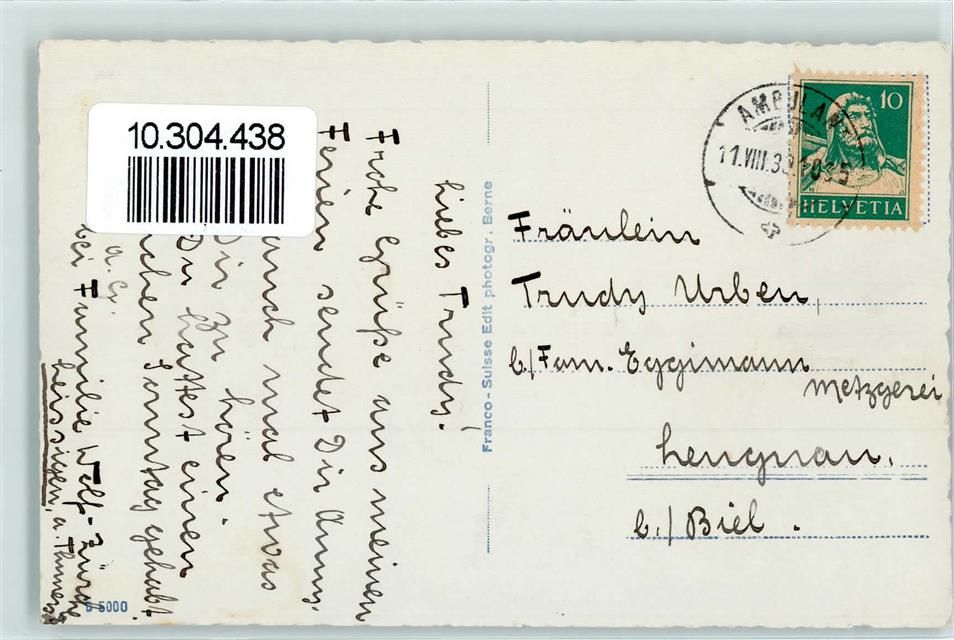 10.304.438
Liebes Trudy!
Frohe Grüße aus meinen
Ferien sendet Dir Anny.
auch mal etwas
Dir zu hören.
Du hattest einen
Sonntag gehabt.
a. G.
bei Familie Wolf-
Leissigen, a. Thunersee
Franco-Suisse Edit photogr. Berne
B 5000
AMBULANT
11.VIII.33
10
HELVETIA
Fräulein
Trudy Urben,
b/Fam. Eggimann
Metzgerei
Lengnau.
b./Biel.